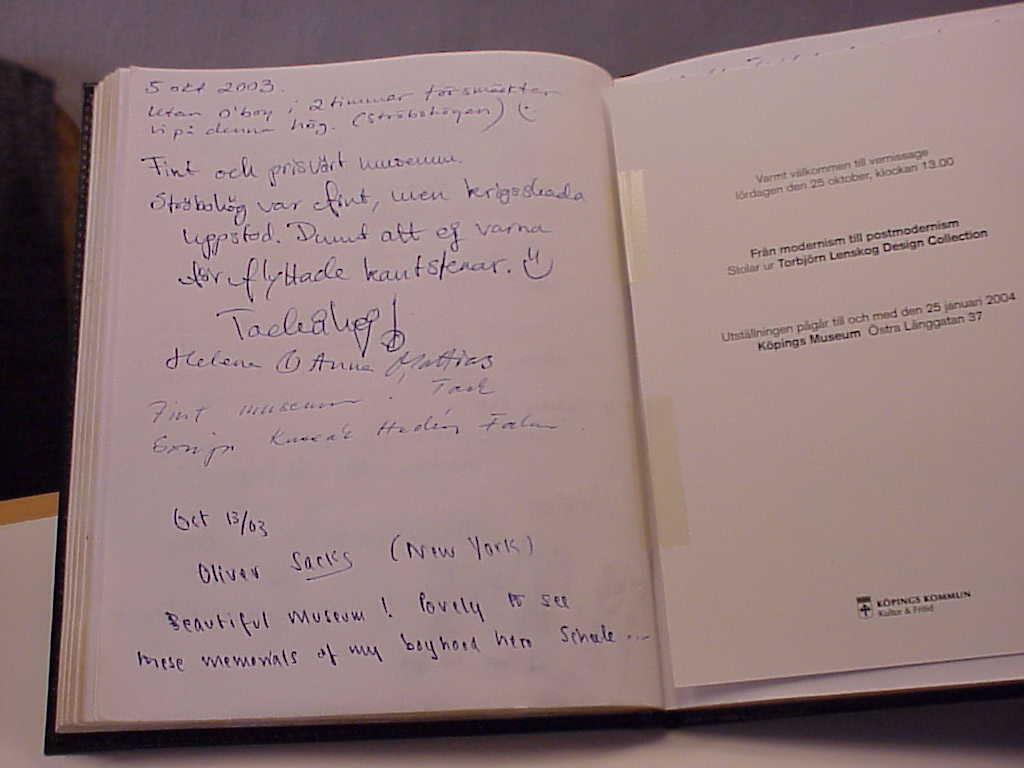 5 okt 2003.
Utan O'boy i 2 timmar försmäktar
vi på denna hög. (Ströbohögen) :(
Fint och prisvärt museum.
Ströbohög var fint, men krigsskada
uppstod. Dumt att ej varna
för flyttade kantstenar.
Tack & hej!
Helena Anna Mattias
Fint museum. Tack
Hedén Falun.
Oct 13/03
Oliver Sacks (New York)
Beautiful museum! Lovely to see
these memorials of my boyhood hero Scheele ...
Varmt välkommen till vernissage
lördagen den 25 oktober, klockan 13.00
Från modernism till postmodernism
Stolar ur Torbjörn Lenskog Design Collection
Utställningen pågår till och med den 25 januari 2004
Köpings Museum Östra Långgatan 37
KÖPINGS KOMMUN
Kultur & Fritid